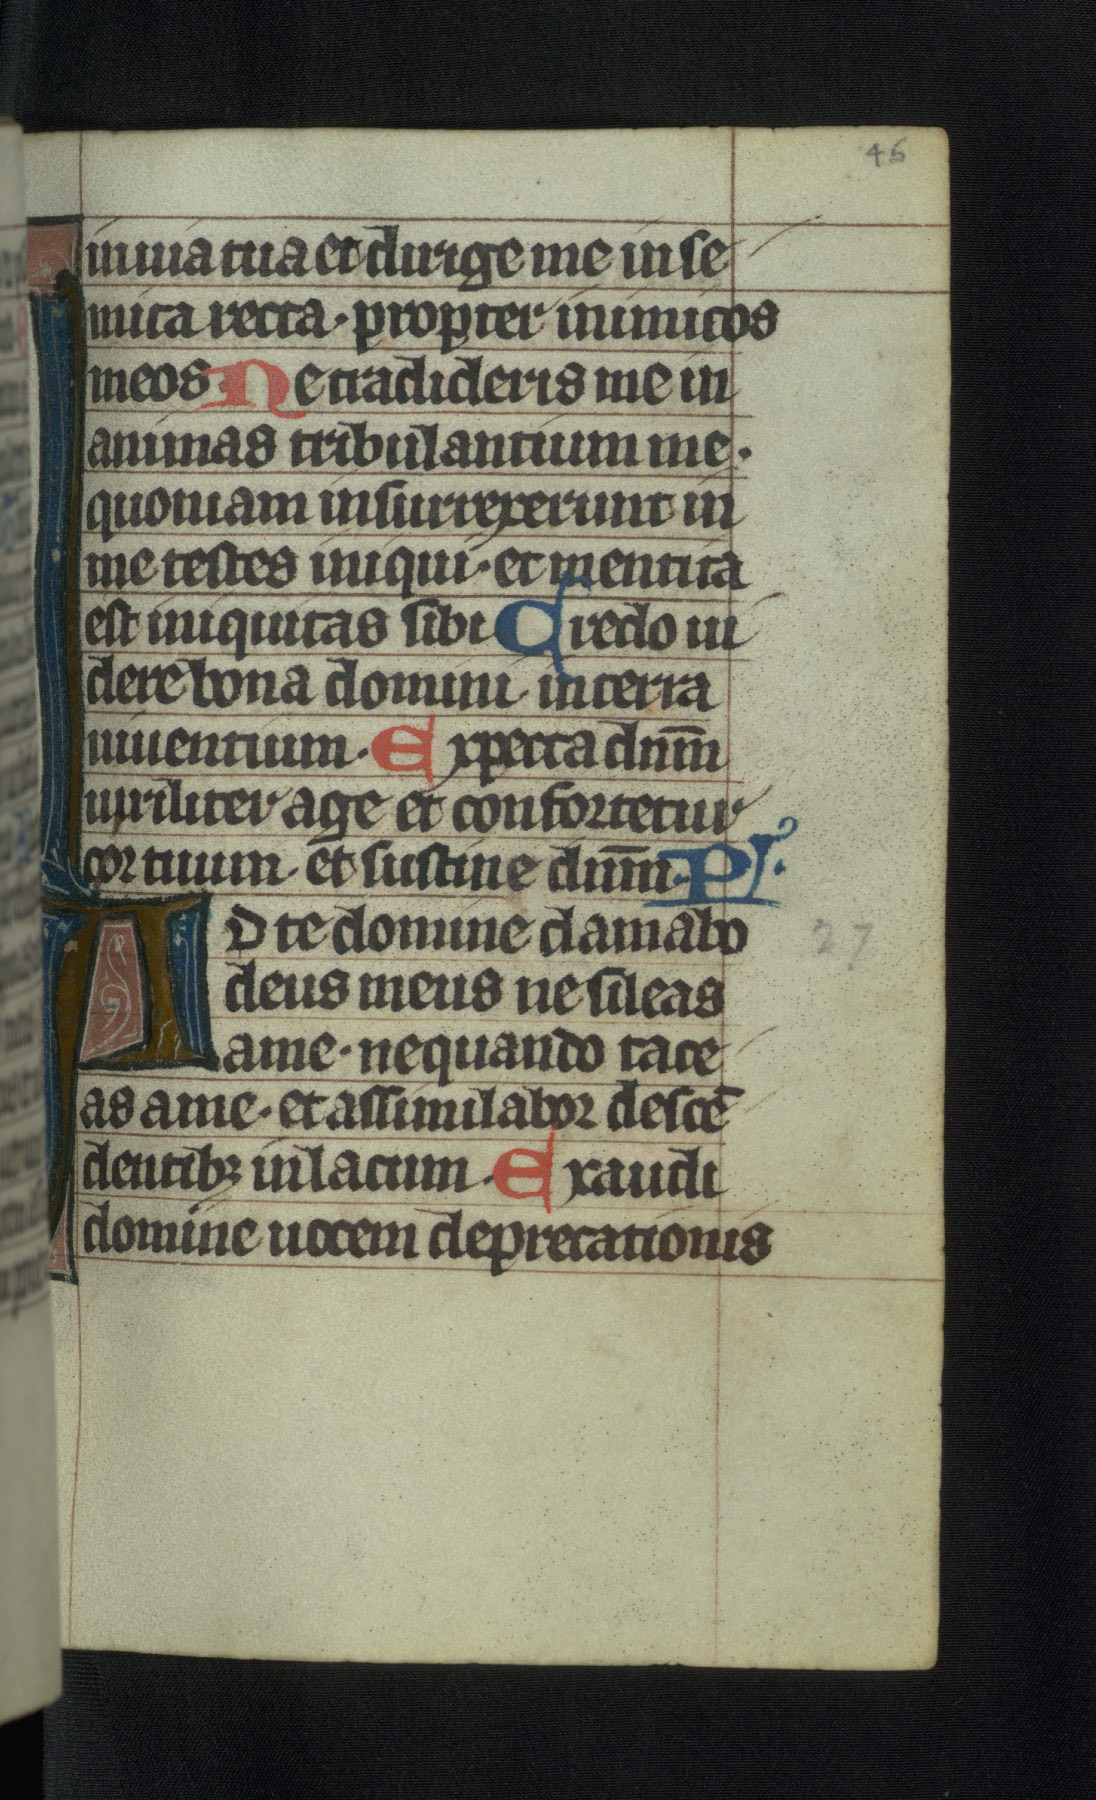 46
in uia tua et dirige me in se
mita recta · propter inimicos
meos Ne tradideris me in
animas tribulantium me ·
quoniam insurrexerunt in
me testes iniqui · et mentita
est iniquitas sibi Credo ui
dere bona domini in terra
uiuentium · Expecta dnm̄
uiriliter age et confortetur
cor tuum · et sustine dnm̄ · Ps ·
AD te domine clamabo
deus meus ne sileas
a me · nequando tace
as a me · et assimilabor descē
dentibꝫ in lacum · Exaudi
domine uocem deprecationis
27